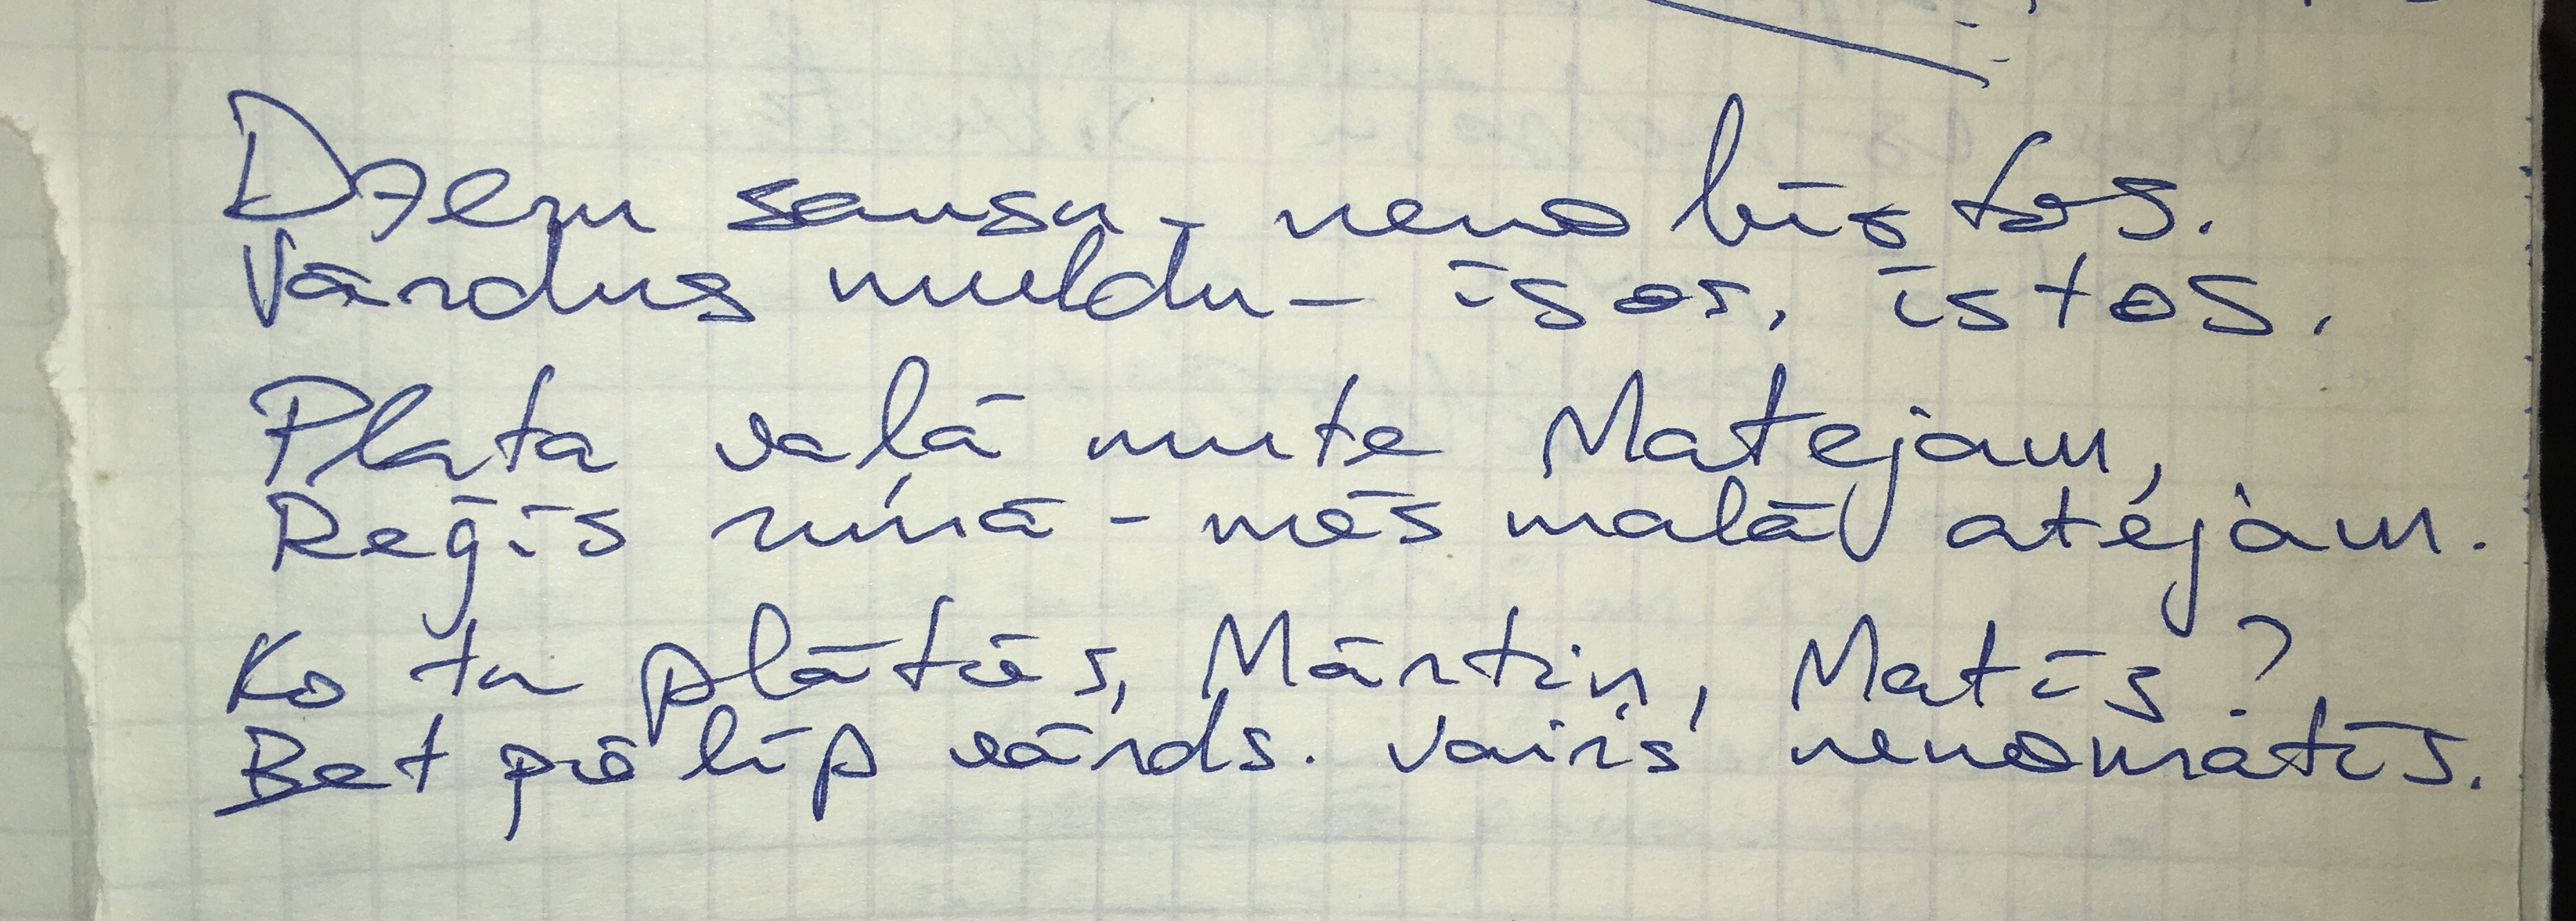 Dzeru sausu - nenobīstos.
Vārdus muldu - īsos, īstos.
Plata vaļā mute Matejam,
Reģīs rūnā - mēs malā atejam.
Ko tu plāties, Mārtiņ, Matīs?
Bet pielīp vārds. Vairs nenomatīs.